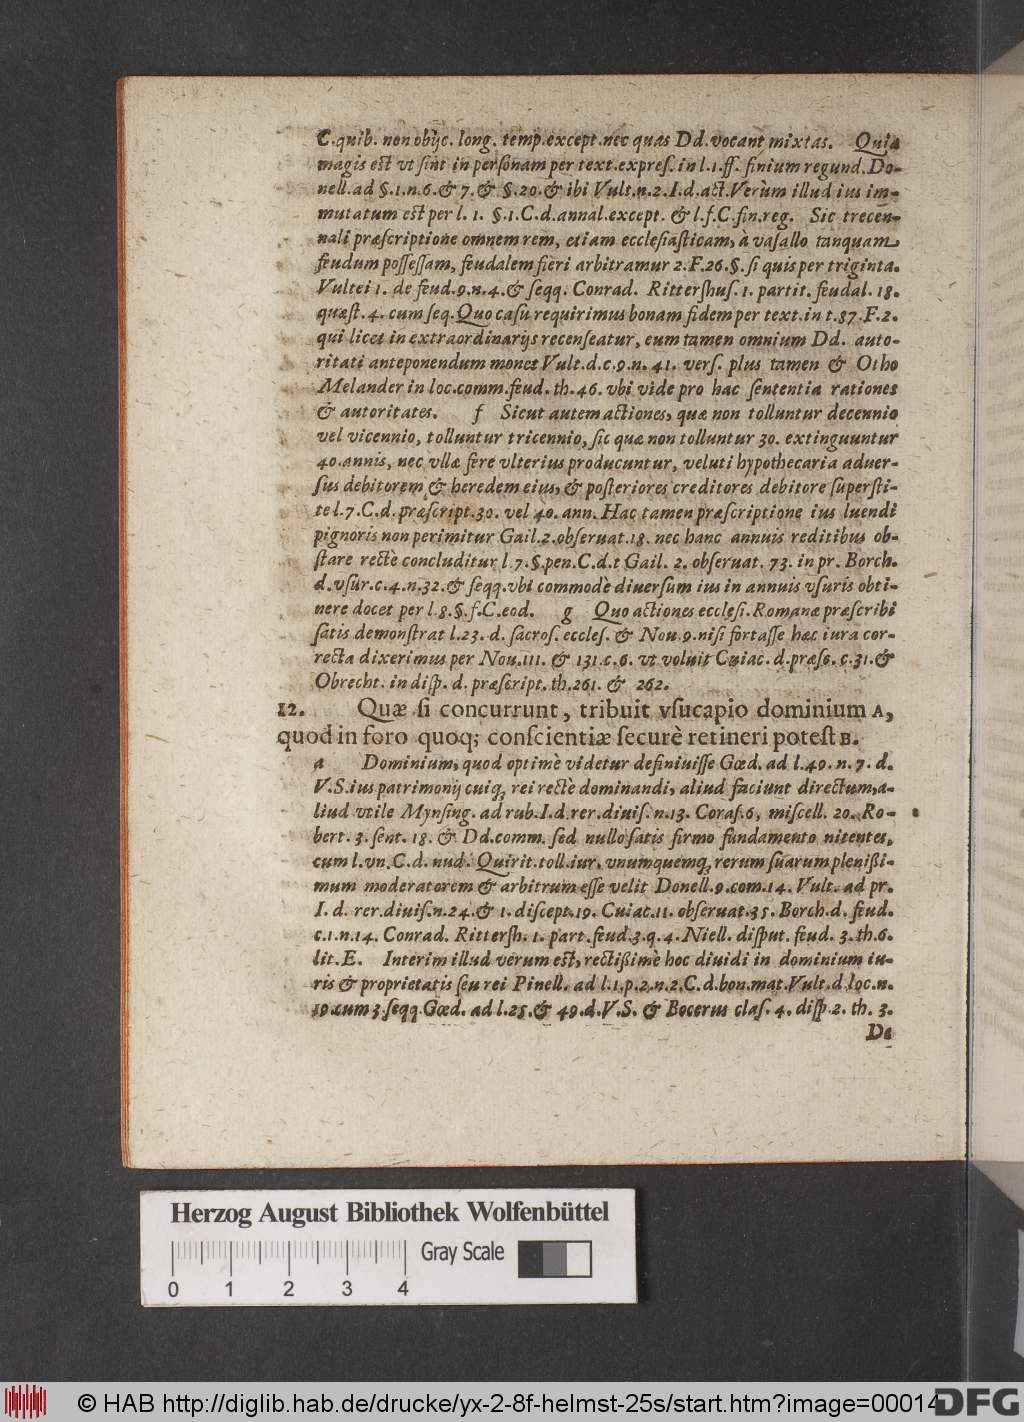 C. quib. non obijc. long. temp. except. nec quas Dd. vocant mixtas. Quia
magis est vt sint in personam per text. expres. in l. 1. ff. finium regund. Do-
nell. ad §. 1. n. 6. & 7. & §. 20. & ibi Vult. n. 2. I. d. act. Verùm illud ius im-
mutatum est per l. 1. §. 1. C. d. annal. except. & l. f. C. fin. reg. Sic trecen-
nali præscriptione omnem rem, etiam ecclesiasticam, à vasallo tanquam
feudum possessam, feudalem fieri arbitramur 2. F. 26. §. si quis per triginta.
Vultei 1. de feud. 9. n. 4. & seqq. Conrad. Rittershus. 1. partit. feudal. 18.
quæst. 4. cum seq. Quo casu requirimus bonam fidem per text. in t. 87. F. 2.
qui licet in extraordinarijs recenseatur, eum tamen omnium Dd. auto-
ritati anteponendum monet Vult. d. c. 9. n. 41. vers. plus tamen & Otho
Melander in loc. comm. feud. th. 46. vbi vide pro hac sententia rationes
& autoritates. f Sicut autem actiones, quæ non tolluntur decennio
vel vicennio, tolluntur tricennio, sic quæ non tolluntur 30. extinguuntur
40. annis, nec vllæ fere vlterius producuntur, veluti hypothecaria aduer-
sus debitorem & heredem eius, & posteriores creditores debitore supersti-
te l. 7. C. d. præscript. 30. vel 40. ann. Hac tamen præscriptione ius luendi
pignoris non perimitur Gail. 2. obseruat. 18. nec hanc annuis reditibus ob-
stare rectè concluditur l 7. §. pen. C. d. t Gail. 2. obseruat. 73. in pr. Borch.
d. vsur. c. 4. n. 32. & seqq. vbi commodè diuersum ius in annuis vsuris obti-
nere docet per l. 8. §. f. C. eod. g Quo actiones ecclesi. Romanæ præscribi
satis demonstrat l. 23. d. sacros. eccles. & Nou. 9. nisi fortasse hæc iura cor-
recta dixerimus per Nou. 111. & 131. c. 6. vt voluit Cuiac. d. præsc. c. 31. &
Obrecht. in disp. d. præscript. th. 261. & 262.
12. Quæ si concurrunt, tribuit vsucapio dominium A,
quod in foro quoq; conscientiæ securè retineri potest B.
a Dominium, quod optimè videtur definiuisse Gœd. ad l. 49. n. 7. d.
V. S. ius patrimonij cuiq, rei rectè dominandi, aliud faciunt directum, a-
liud vtile Mynsing. ad rub. I. d. rer. diuis. n. 13. Coras. 6, miscell. 20. Ro-
bert. 3. sent. 18. & Dd. comm. sed nullo satis firmo fundamento nitentes,
cum l. vn. C. d. nud. Quirit. toll. iur. vnumquemq, rerum suarum plenißi-
mum moderatorem & arbitrum esse velit Donell. 9. com. 14. Vult. ad pr.
I. d. rer. diuis. n. 24. & 1. discept. 19. Cuiac. 11. obseruat. 35. Borch. d. feud.
c. 1. n. 14. Conrad. Rittersh. 1. part. feud. 3. q. 4. Niell. disput. feud. 3. th. 6.
lit. E. Interim illud verum est, rectißimè hoc diuidi in dominium iu-
ris & proprietatis seu rei Pinell. ad l. 1. p. 2. n. 2. C. d. bon. mat. Vult. d. loc. n.
19. cum 3. seqq. Gœd. ad l. 25. & 49. d. V. S. & Bocerus clas. 4. disp. 2. th. 3.
De
Herzog August Bibliothek Wolfenbüttel
Gray Scale
0 1 2 3 4
© HAB http://diglib.hab.de/drucke/yx-2-8f-helmst-25s/start.htm?image=00014
DFG